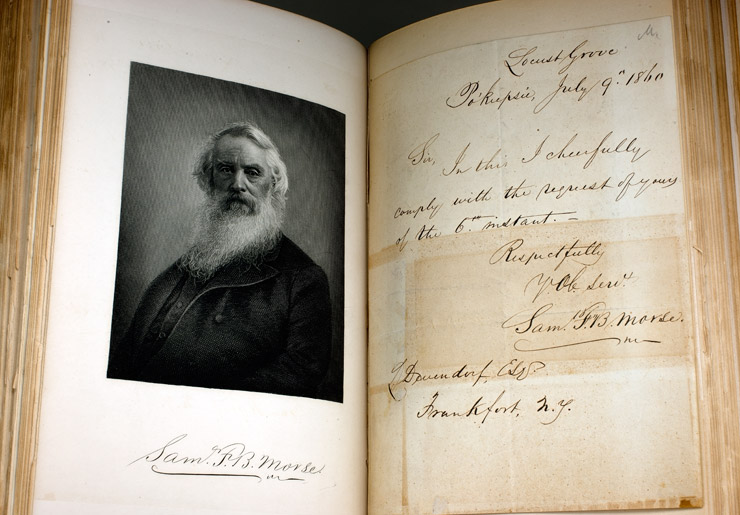 Sam¹. F. B. Morse
M.
Locust Grove
Po'keepsie, July 9ᵗʰ 1860
Sir, In this I cheerfully
comply with the request of yours
of the 6ᵗʰ instant. =
Respectfully
Yʳ Ob servᵗ
Sam¹. F. B. Morse.
Devendorf, Esqʳ
Frankfort, N.Y.